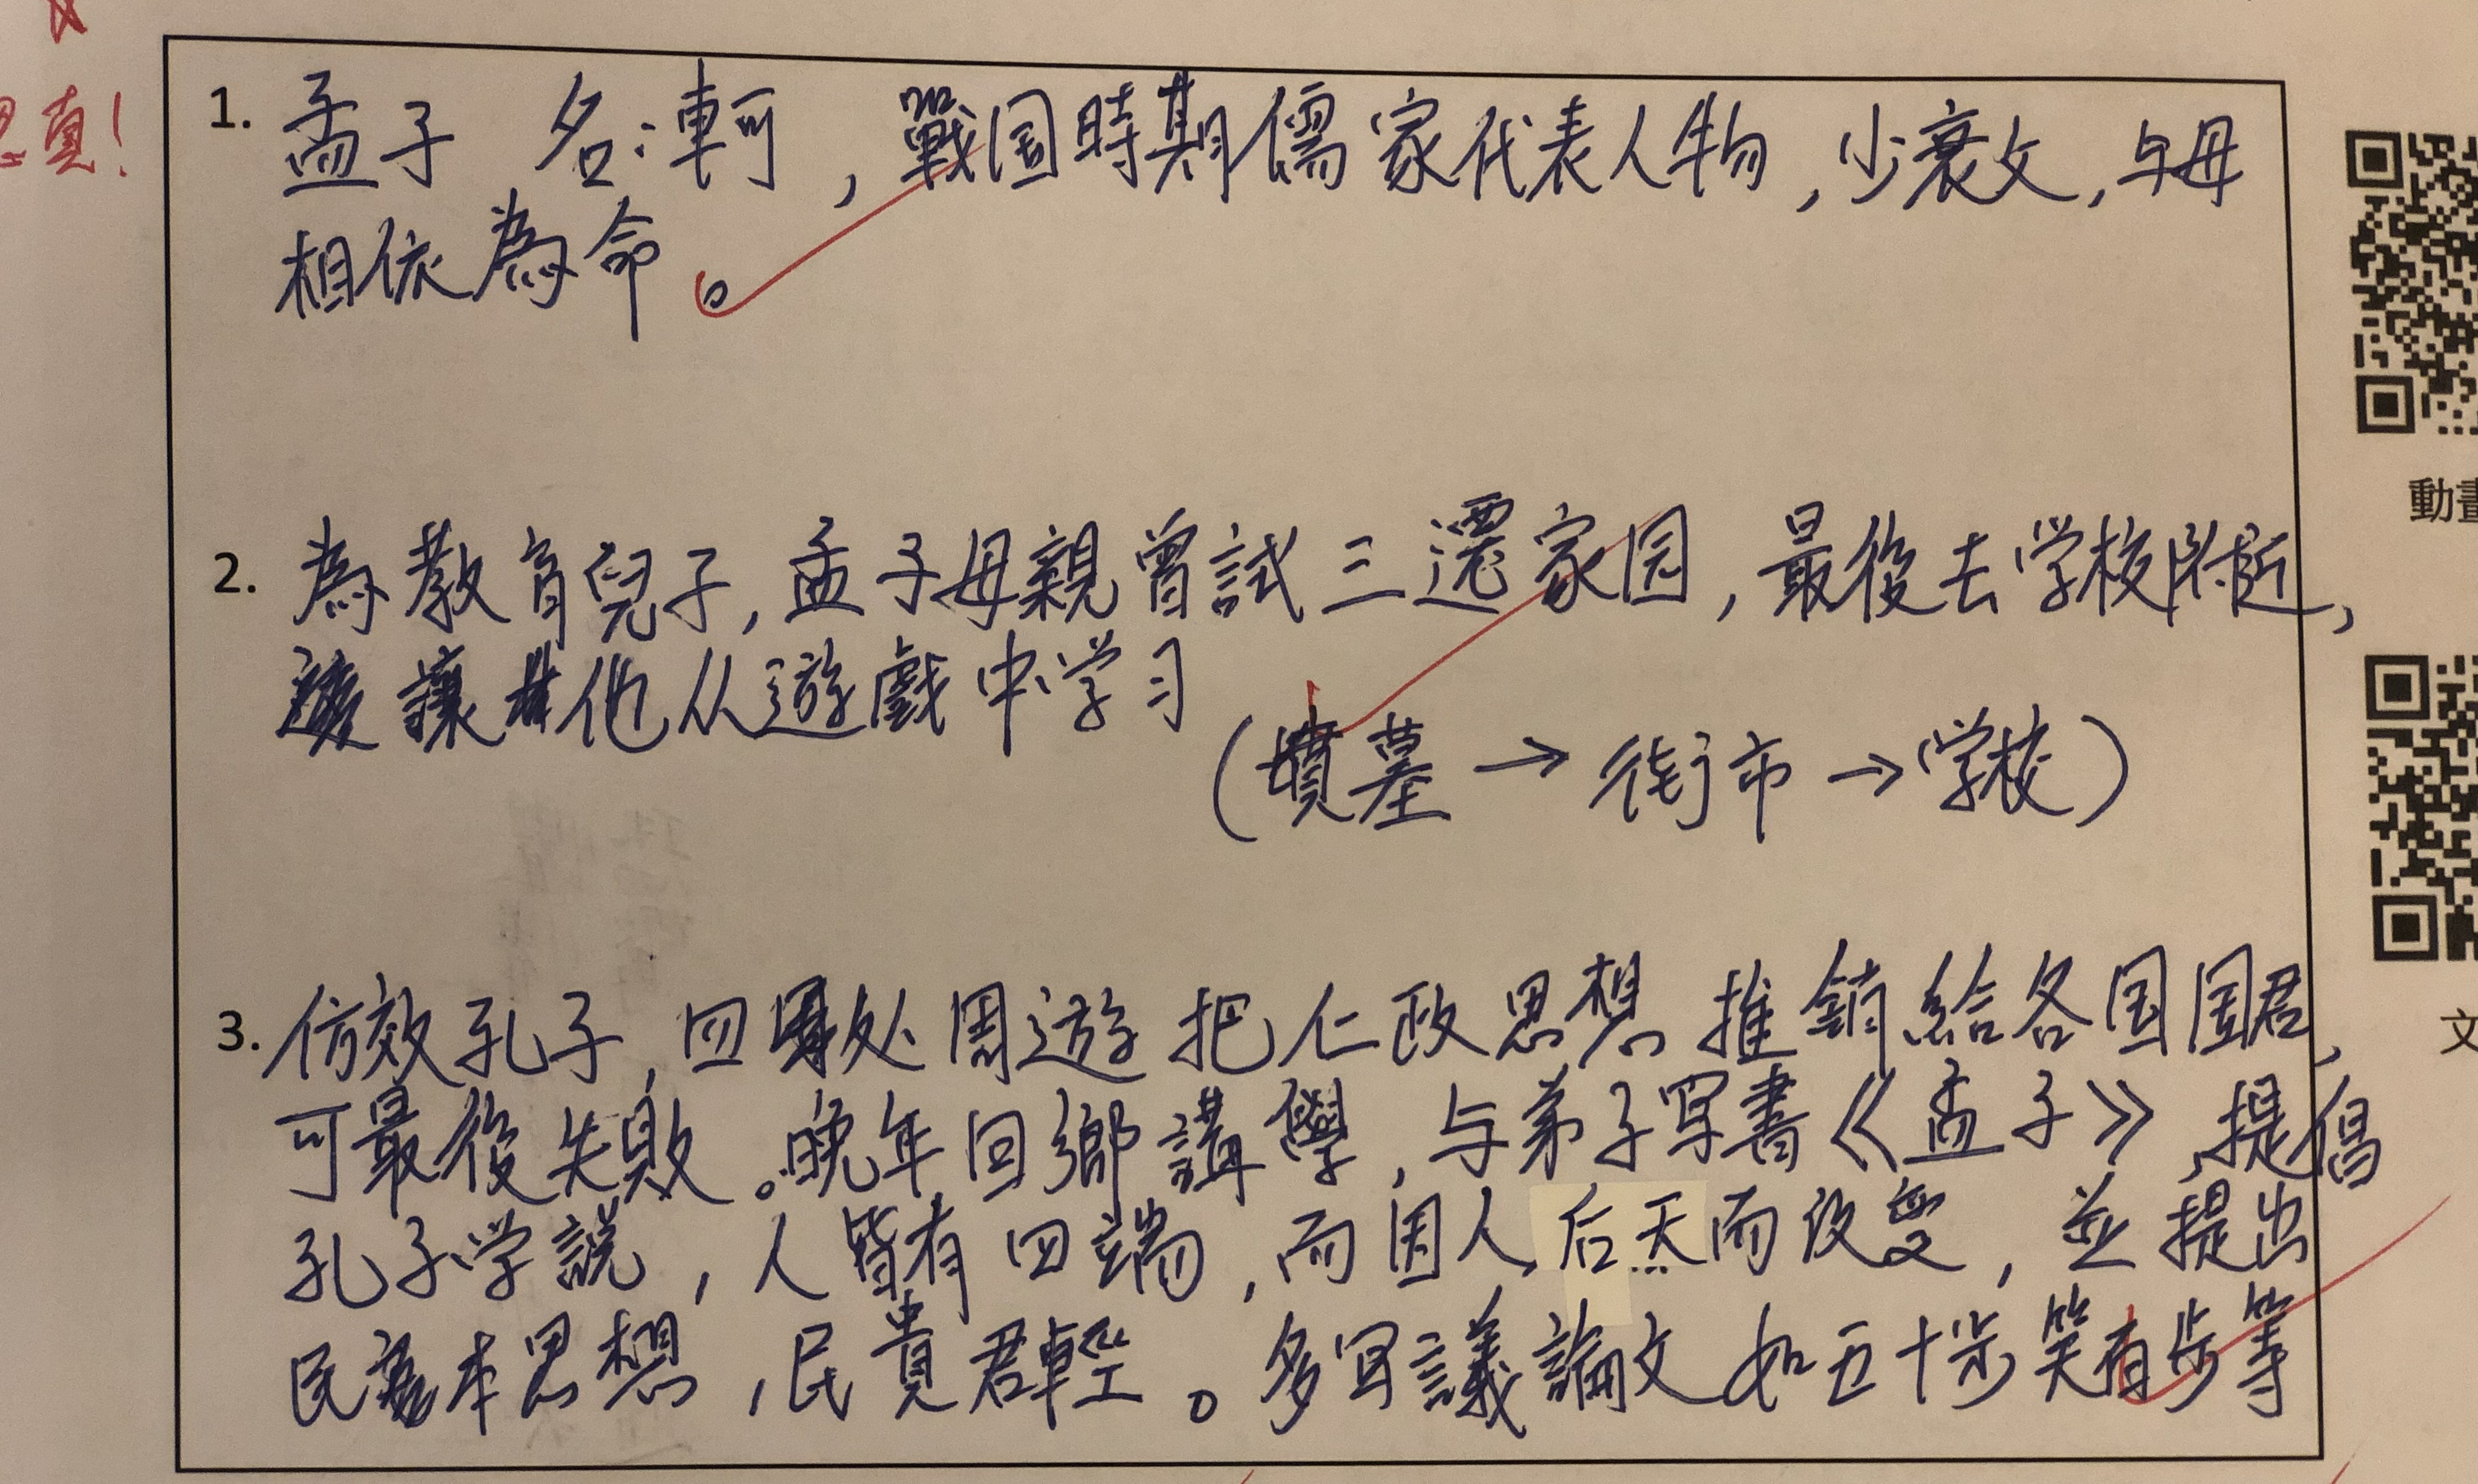 真!
1. 孟子 名:軻，戰国時期儒家代表人物，少衰文，与母
相依為命。
動畫
2. 為教育兒子，孟子母親曾試三遷家园，最後去学校附近，
讓他从遊戲中学习
(墳墓→街市→学校)
3. 仿效孔子，四处周遊把仁政思想推銷給各国国君，
文
可最後失敗。晚年回鄉講學，与弟子写書《孟子》，提倡
孔子学說，人皆有四端，而因人后天而改变，並提出
民為本思想，民貴君輕。多写議論文如五十步笑百步等